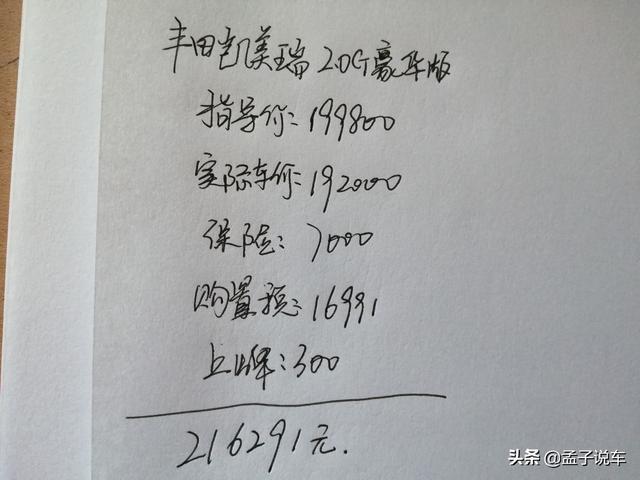 丰田凯美瑞 2.0G豪华版
指导价：199800
实际车价：192000
保险：7000
购置税：16991
上牌：300
216291元.
头条 @孟子说车